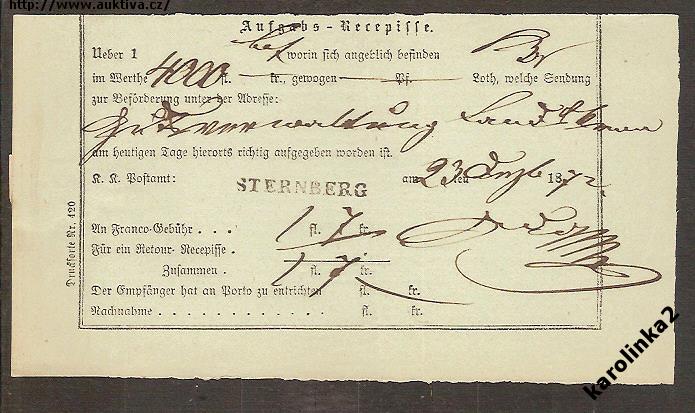 http://www.auktiva.cz/
Aufgabs - Recepisse.
Ueber 1 worin sich angeblich befinden
im Werthe 4000 fl. kr., gewogen Pf. Loth, welche Sendung
zur Beförderung unter der Adresse:
Gutsverwaltung Landskron
am heutigen Tage hierorts richtig aufgegeben worden ist.
K. K. Postamt: STERNBERG am 23 ten Dezb 1872.
An Franco-Gebühr . . . 1 fl. 7 kr.
Für ein Retour-Recepisse .
Zusammen . 1 fl. 7 kr.
Der Empfänger hat an Porto zu entrichten fl. kr.
Nachnahme . . . . . . . . . . . . fl. kr.
Drucksorte Nr. 120
karolinka2